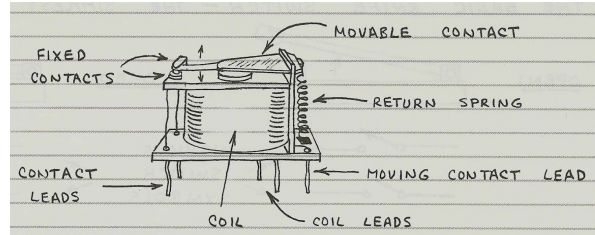 MOVABLE CONTACT
FIXED
CONTACTS
RETURN SPRING
CONTACT
LEADS
MOVING CONTACT LEAD
COIL
COIL LEADS